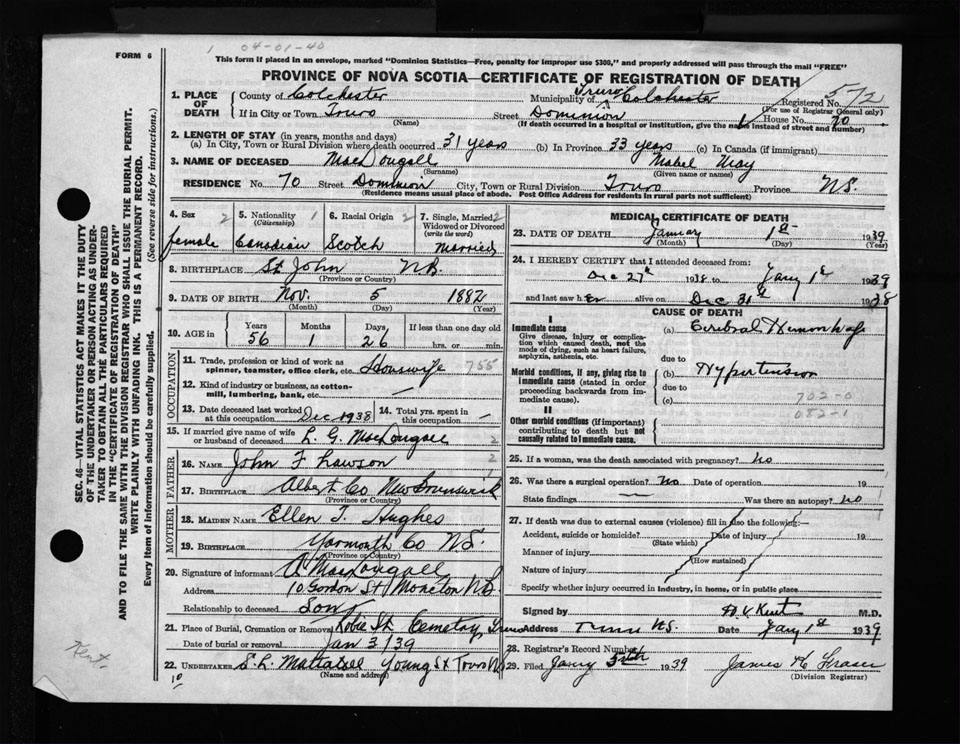 FORM 6
1 04-01-40
This form if placed in an envelope, marked "Dominion Statistics—Free, penalty for improper use $300," and properly addressed will pass through the mail "FREE"
PROVINCE OF NOVA SCOTIA—CERTIFICATE OF REGISTRATION OF DEATH
1. PLACE OF DEATH
County of Colchester Municipality of Truro Colchester Registered No. 572
(For use of Registrar General only)
If in City or Town Truro Street Dominion House No. 70
(Name) (If death occurred in a hospital or institution, give the name instead of street and number)
2. LENGTH OF STAY (in years, months and days)
(a) In City, Town or Rural Division where death occurred 31 years (b) In Province 33 years (c) In Canada (if immigrant)
3. NAME OF DECEASED MacDougall Mabel May
(Surname) (Given name or names)
RESIDENCE No. 70 Street Dominion City, Town or Rural Division Truro Province N.S.
(Residence means usual place of abode. Post Office Address for residents in rural parts not sufficient)
4. Sex 2 female
5. Nationality (Citizenship) 1 Canadian
6. Racial Origin 2 Scotch
7. Single, Married, Widowed or Divorced (write the word) 2 Married
8. BIRTHPLACE St John N.B.
(Province or Country)
9. DATE OF BIRTH Nov. 5 1882
(Month) (Day) (Year)
10. AGE in Years 56 Months 1 Days 26 If less than one day old hrs. or min.
OCCUPATION
11. Trade, profession or kind of work as spinner, teamster, office clerk, etc. Houswife 755
12. Kind of industry or business, as cotton-mill, lumbering, bank, etc. —
13. Date deceased last worked at this occupation Dec 1938 14. Total yrs. spent in this occupation —
15. If married give name of wife or husband of deceased L. G. MacDougall 2
FATHER
16. NAME John F Lawson 2
17. BIRTHPLACE Albert Co New Brunswick 1
(Province or Country)
MOTHER
18. MAIDEN NAME Ellen T. Hughes
19. BIRTHPLACE Yarmouth Co N.S.
(Province or Country)
20. Signature of informant A MacDougall
Address 10 Gordon St Moncton N.B.
Relationship to deceased Son
21. Place of Burial, Cremation or Removal Robie St. Cemetery, Truro
Date of burial or removal Jan 3/39
22. UNDERTAKER Young St Truro N.S.
(NAME AND ADDRESS)
MEDICAL CERTIFICATE OF DEATH
23. DATE OF DEATH January 1st 1939
(Month) (Day) (Year)
24. I HEREBY CERTIFY that I attended deceased from:
Dec 27th 1938 to Jany 1st 1939
and last saw her alive on Dec 31st 1938
CAUSE OF DEATH
I
Immediate cause
Give disease, injury or complication which caused death, not the mode of dying, such as heart failure, asphyxia, asthenia, etc.
(a) Cerebral Hemorrhage
due to
Morbid conditions, if any, giving rise to immediate cause (stated in order proceeding backwards from immediate cause).
(b) Hypertension
due to
(c) 702-0
082-1
II
Other morbid conditions (if important) contributing to death but not causally related to immediate cause.
25. If a woman, was the death associated with pregnancy? No
26. Was there a surgical operation? No Date of operation 19
State findings — Was there an autopsy? No
27. If death was due to external causes (violence) fill in also the following:—
Accident, suicide or homicide? Date of injury 19
(State which)
Manner of injury
(How sustained)
Nature of injury
Specify whether injury occurred in industry, in home, or in public place
Signed by H V Kent M.D.
Address Truro N.S. Date Jany 1st 1939
28. Registrar's Record Number
29. Filed Jany 1939 James K Fraser
(Division Registrar)
SEC. 46—VITAL STATISTICS ACT MAKES IT THE DUTY
OF THE UNDERTAKER OR PERSON ACTING AS UNDER-
TAKER TO OBTAIN ALL THE PARTICULARS REQUIRED
IN THE "CERTIFICATE OF REGISTRATION OF DEATH"
AND TO FILE THE SAME WITH THE DIVISION REGISTRAR WHO SHALL ISSUE THE BURIAL PERMIT.
WRITE PLAINLY WITH UNFADING INK. THIS IS A PERMANENT RECORD.
Every item of information should be carefully supplied. (See reverse side for instructions.)
Kent.
10